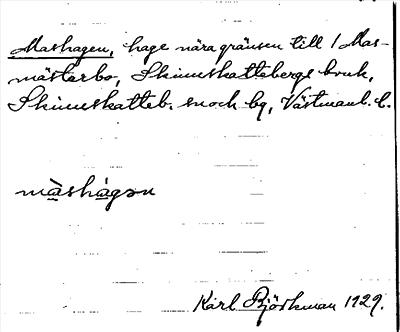 Mashagen, hage nära gränsen till 1 Mas-
mästerbo, Skinnskattebergs bruk,
Skinnskatteb. snoch bg, Västmanl. l.
màshàgən
Karl Björkman 1929.